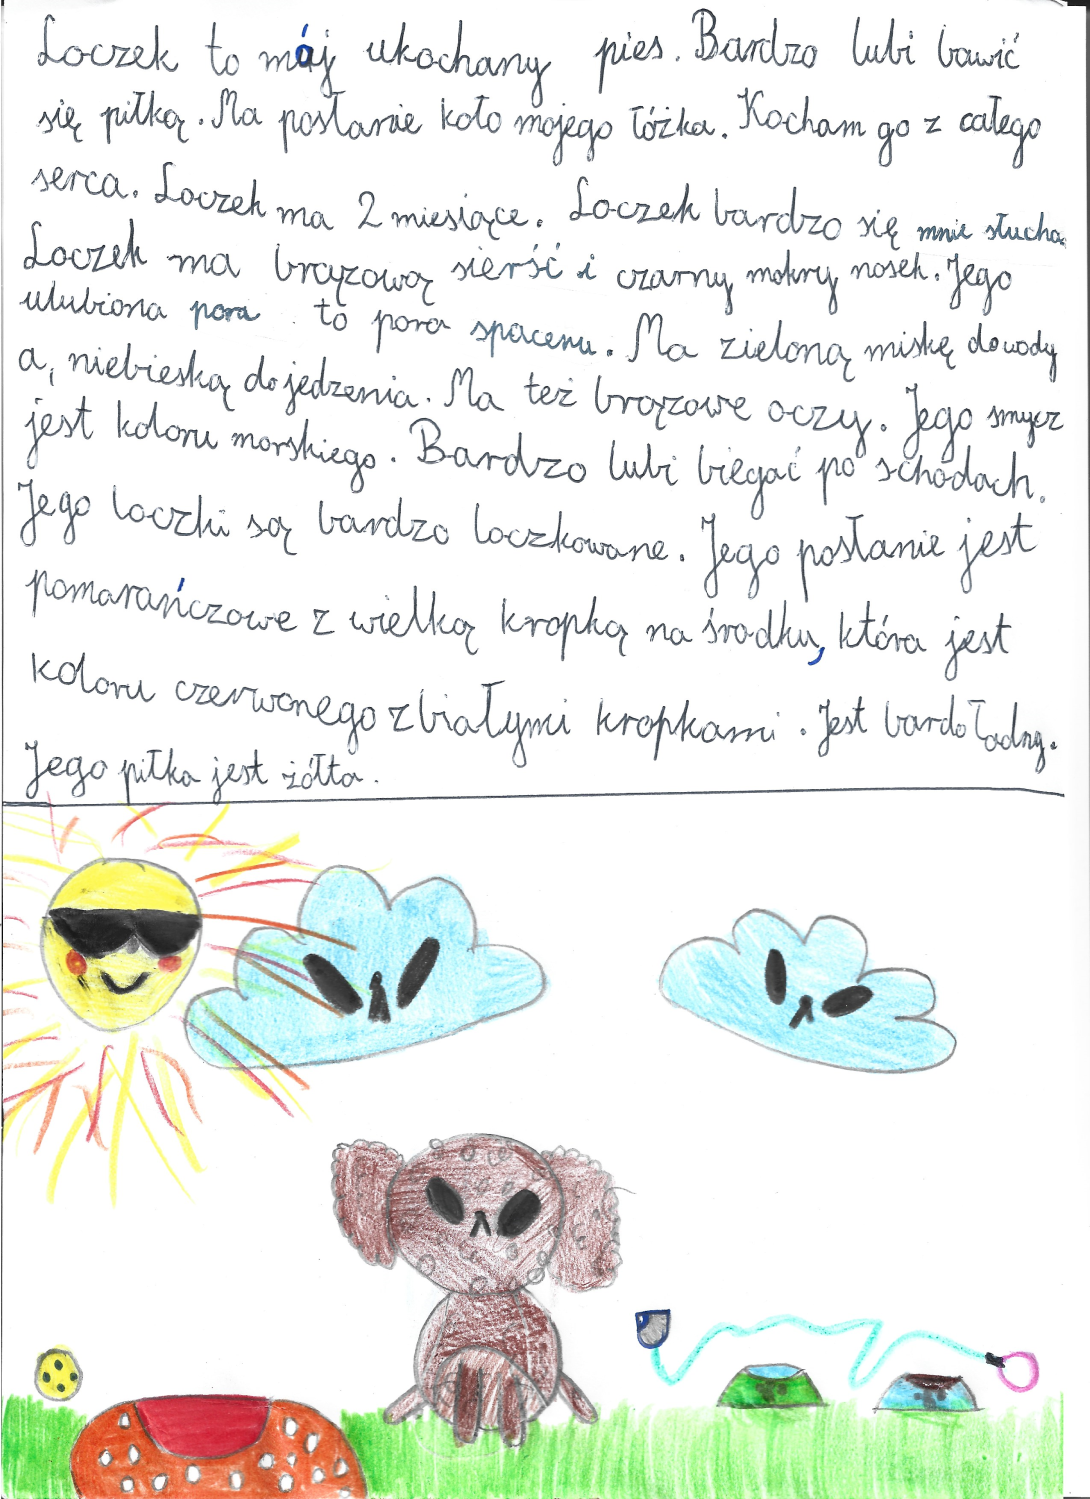 Loczek to mój ukochany pies. Bardzo lubi bawić
się piłką. Ma posłanie koło mojego łóżka. Kocham go z całego
serca. Loczek ma 2 miesiące. Loczek bardzo się mnie słucha.
Loczek ma brązową sierść i czarny mokry nosek. Jego
ulubiona pora to pora spaceru. Ma zieloną miskę do wody
a, niebieską do jedzenia. Ma też brązowe oczy. Jego smycz
jest koloru morskiego. Bardzo lubi biegać po schodach.
Jego loczki są bardzo loczkowane. Jego posłanie jest
pomarańczowe z wielką kropką na środku, która jest
koloru czerwonego z białymi kropkami. Jest bardo ładny.
Jego piłka jest żółta.